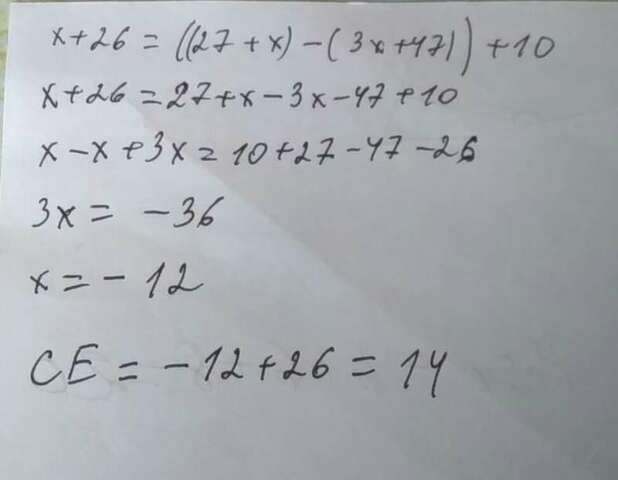 x+26 = ((27+x)-(3x+47))+10
x+26=27+x-3x-47+10
x-x+3x=10+27-47-26
3x= -36
x=-12
CE = -12+26=14